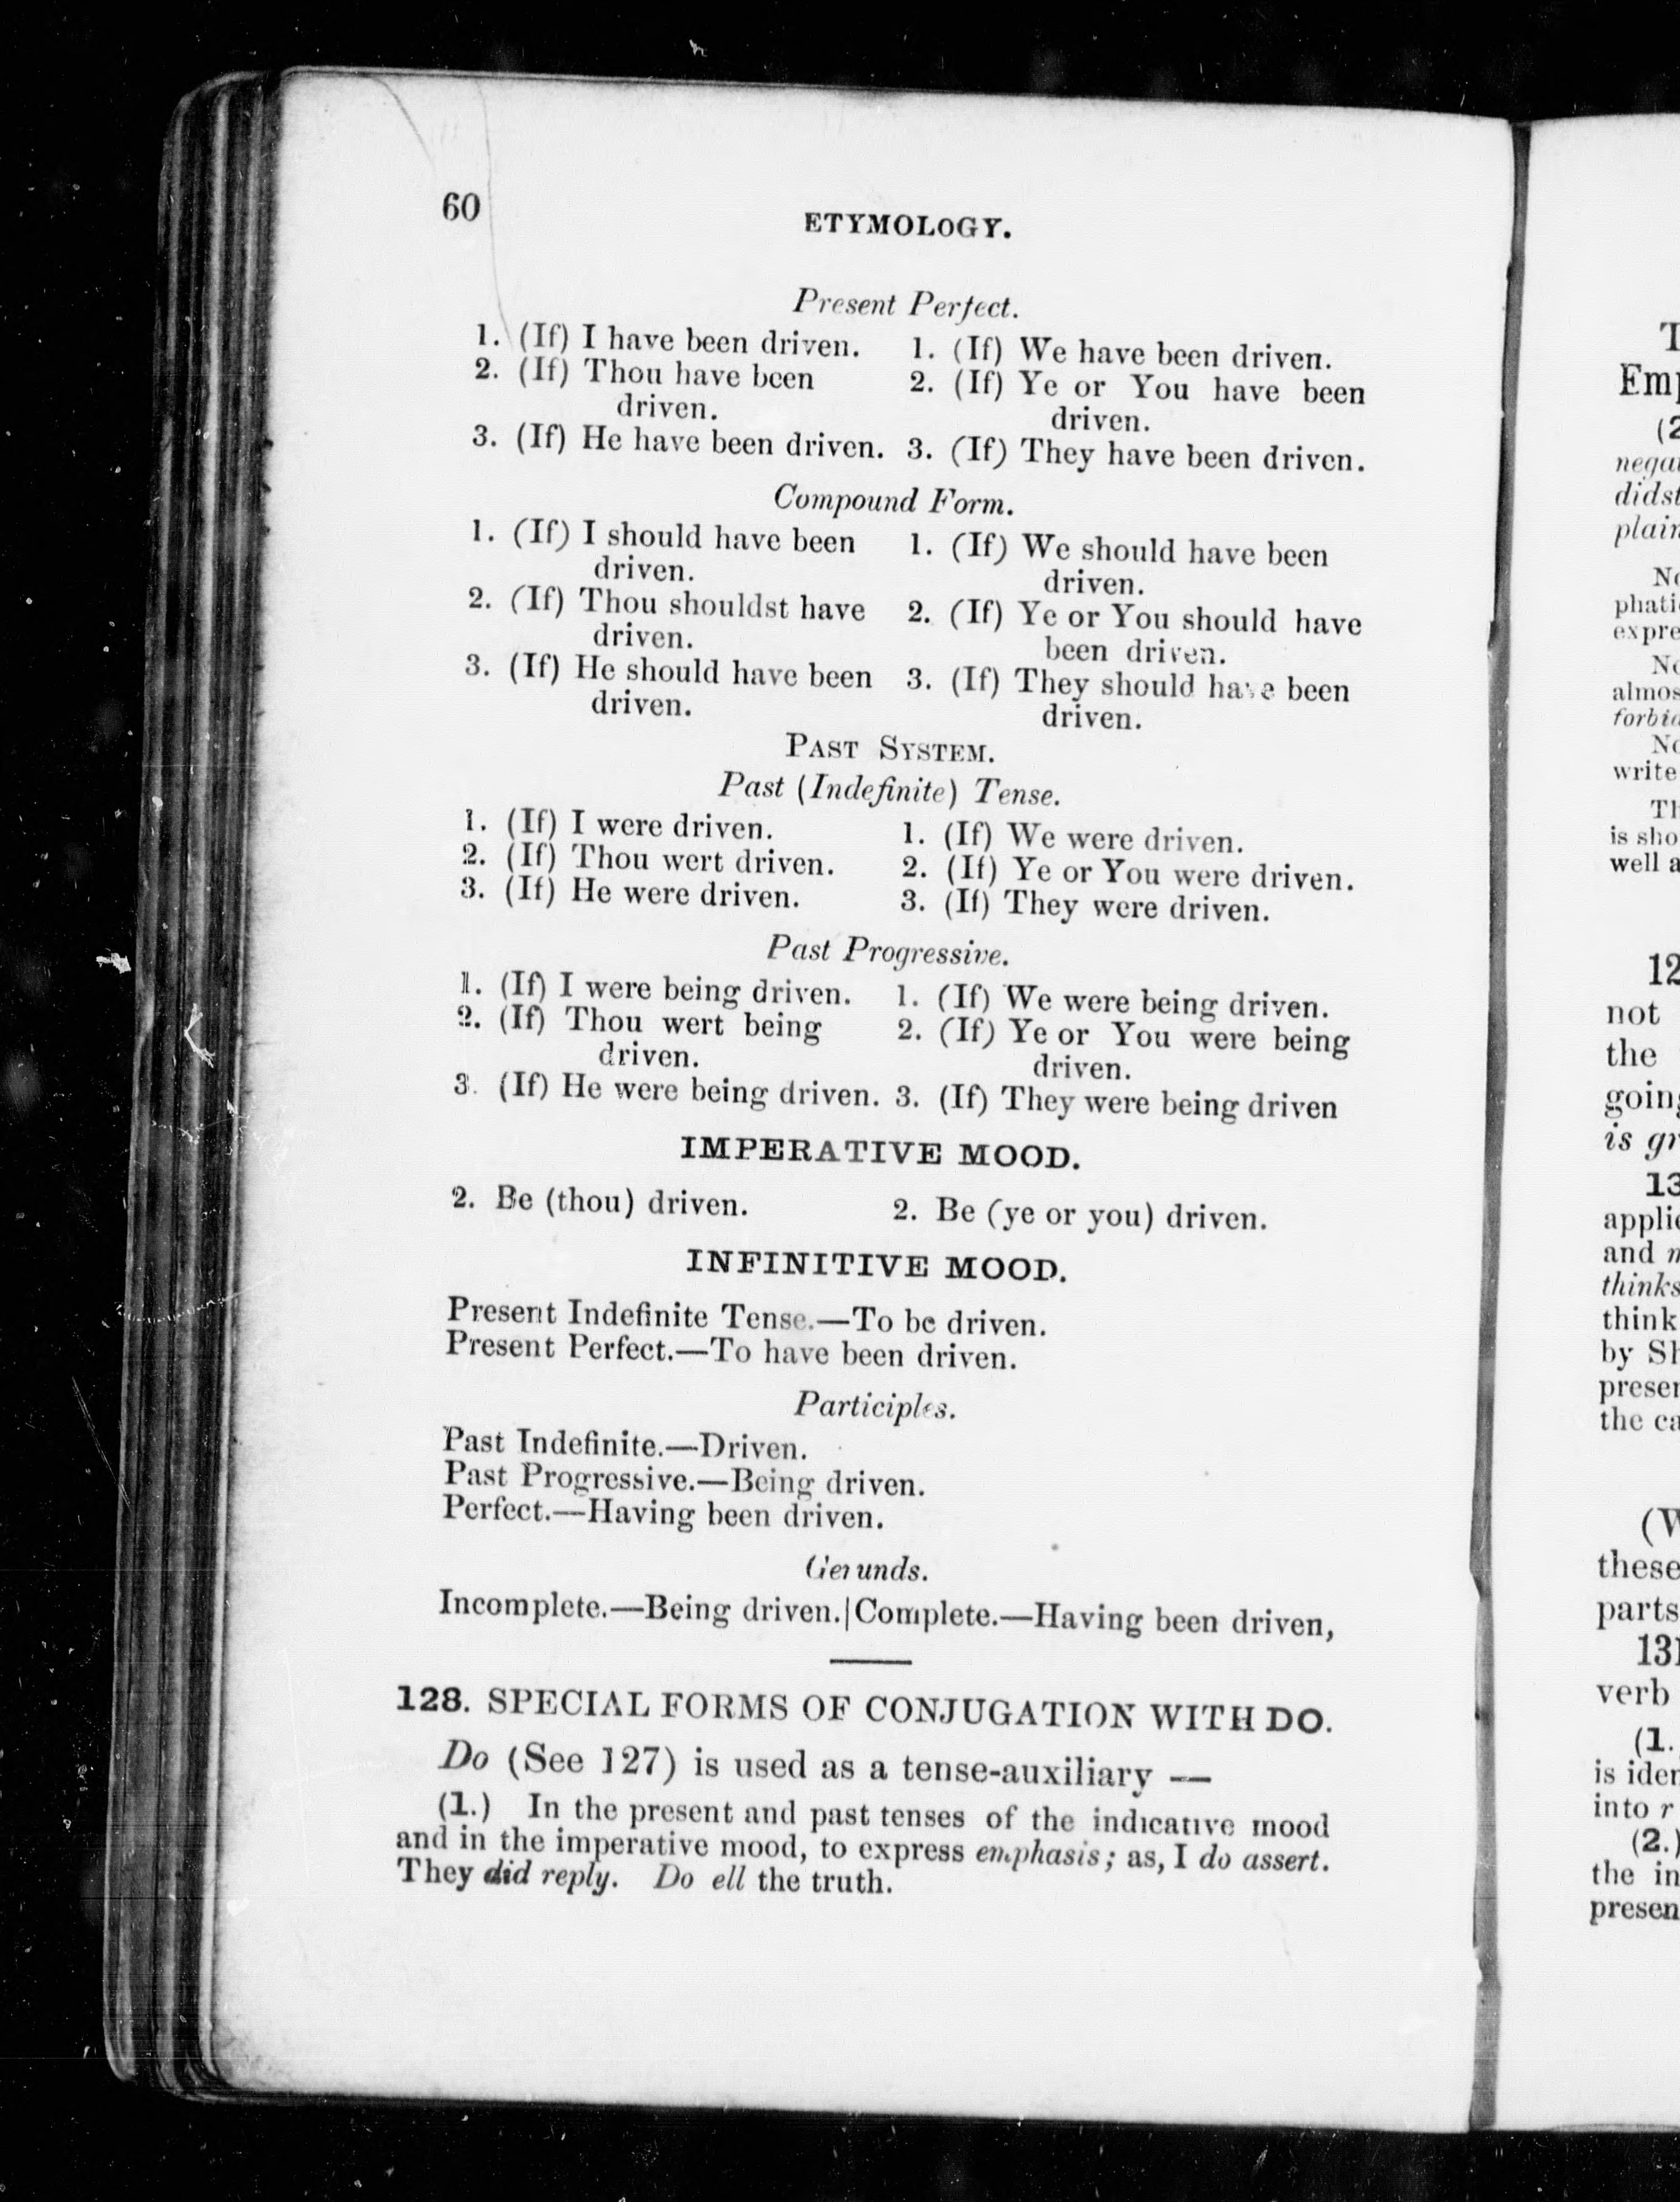 60
ETYMOLOGY.
Present Perfect.
1. (If) I have been driven. 1. (If) We have been driven.
2. (If) Thou have been 2. (If) Ye or You have been
driven. driven.
3. (If) He have been driven. 3. (If) They have been driven.
Compound Form.
1. (If) I should have been 1. (If) We should have been
driven. driven.
2. (If) Thou shouldst have 2. (If) Ye or You should have
driven. been driven.
3. (If) He should have been 3. (If) They should have been
driven. driven.
PAST SYSTEM.
Past (Indefinite) Tense.
1. (If) I were driven. 1. (If) We were driven.
2. (If) Thou wert driven. 2. (If) Ye or You were driven.
3. (If) He were driven. 3. (If) They were driven.
Past Progressive.
1. (If) I were being driven. 1. (If) We were being driven.
2. (If) Thou wert being 2. (If) Ye or You were being
driven. driven.
3. (If) He were being driven. 3. (If) They were being driven
IMPERATIVE MOOD.
2. Be (thou) driven. 2. Be (ye or you) driven.
INFINITIVE MOOD.
Present Indefinite Tense.—To be driven.
Present Perfect.—To have been driven.
Participles.
Past Indefinite.—Driven.
Past Progressive.—Being driven.
Perfect.—Having been driven.
Gerunds.
Incomplete.—Being driven.|Complete.—Having been driven,
128. SPECIAL FORMS OF CONJUGATION WITH DO.
Do (See 127) is used as a tense-auxiliary —
(1.) In the present and past tenses of the indicative mood
and in the imperative mood, to express emphasis; as, I do assert.
They did reply. Do ell the truth.
(2
plain
No
No
almos
No
write
is sho
well a
not
the
going
is gr
13
and
thinks
think
by Sh
the ca
these
parts
131
verb
(1.
into r
(2.)
the in
presen